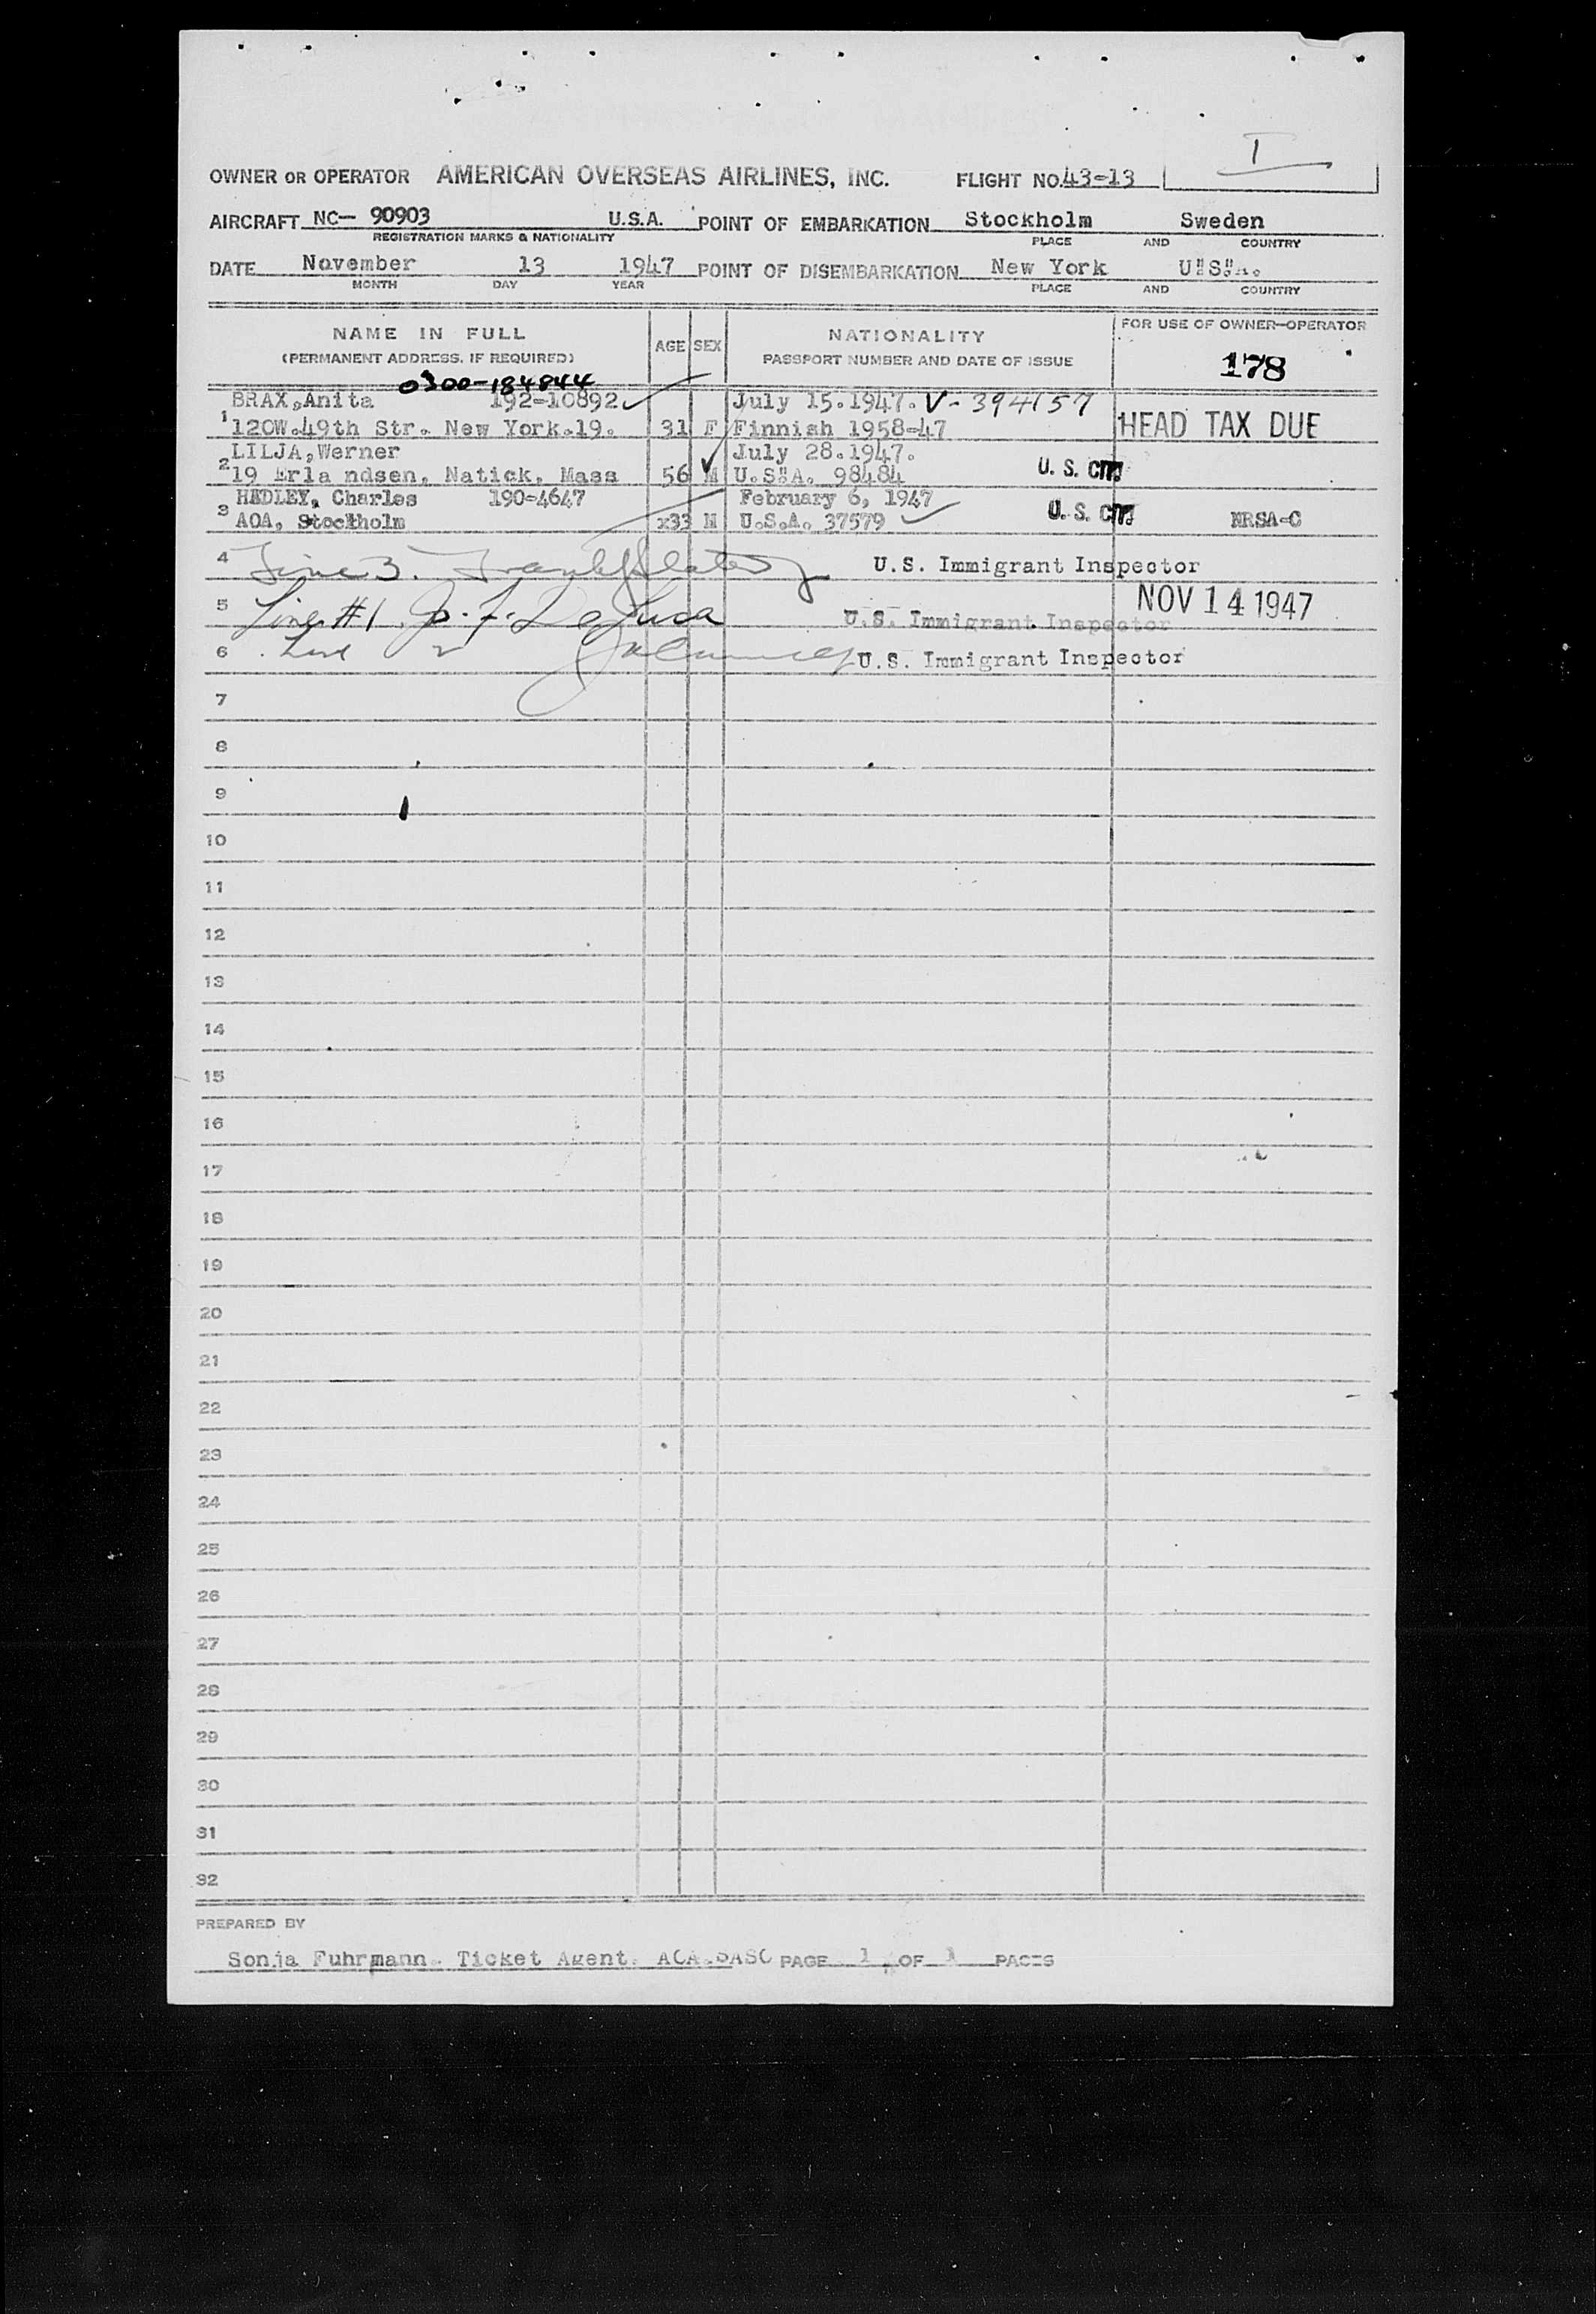 I
OWNER OR OPERATOR AMERICAN OVERSEAS AIRLINES, INC. FLIGHT NO. 43-13
AIRCRAFT NC- 90903 U.S.A. POINT OF EMBARKATION Stockholm Sweden
REGISTRATION MARKS & NATIONALITY PLACE AND COUNTRY
DATE November 13 1947 POINT OF DISEMBARKATION New York U.S.A.
MONTH DAY YEAR PLACE AND COUNTRY
NAME IN FULL AGE SEX NATIONALITY FOR USE OF OWNER-OPERATOR
(PERMANENT ADDRESS, IF REQUIRED) PASSPORT NUMBER AND DATE OF ISSUE 178
0300-184844
BRAX,Anita 192-10892 July 15.1947. V-394157
1 120W.49th Str. New York.19. 31 F Finnish 1958-47 HEAD TAX DUE
LILJA,Werner July 28.1947.
2 19 Erla ndsen, Natick, Mass 56 M U.S.A. 98484 U. S. CIT.
HEDLEY, Charles 190-4647 February 6, 1947
3 AOA, Stockholm x33 M U.S.A. 37579 U. S. CIT. NRSA-C
4 Line 3. U.S. Immigrant Inspector
5 Line #1 J. F. DeLuca U.S. Immigrant Inspector NOV 14 1947
6 Line 2 U.S. Immigrant Inspector
7
8
9
10
11
12
13
14
15
16
17
18
19
20
21
22
23
24
25
26
27
28
29
30
31
32
PREPARED BY
Sonja Fuhrmann. Ticket Agent. AOA.SASO PAGE 1 OF 1 PAGES